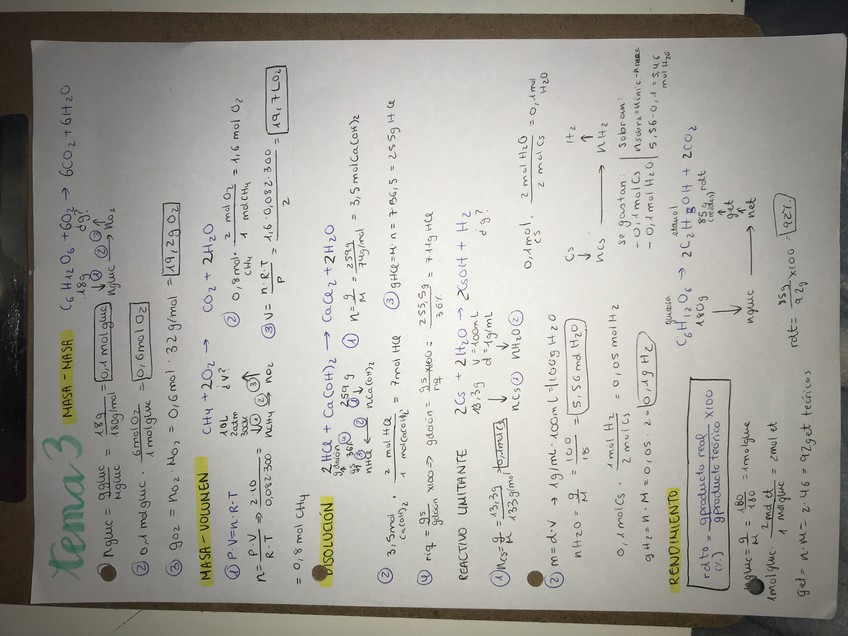 tema 3
MASA-MASA
C6H12O6 + 6O2 → 6CO2 + 6H2O
18g ¿g?
↓① ③↑
ngluc ② → nO2
① ngluc = ggluc / Mgluc = 18g / 180g/mol = 0,1 mol gluc
② 0,1 mol gluc · 6 mol O2 / 1 mol gluc = 0,6 mol O2
③ gO2 = nO2 · MO2 = 0,6 mol · 32 g/mol = 19,2 g O2
MASA-VOLUMEN
CH4 + 2O2 → CO2 + 2H2O
10L ¿V?
2atm
300K
↓① ③↑
nCH4 ② → nO2
① P·V = n·R·T
n = P·V / R·T ⇒ 2·10 / 0,082·300 =
= 0,8 mol CH4
② 0,8 mol CH4 · 2 mol O2 / 1 mol CH4 = 1,6 mol O2
③ V = n·R·T / P = 1,6·0,082·300 / 2 = 19,7 L O2
DISOLUCIÓN
2HCl + Ca(OH)2 → CaCl2 + 2H2O
gdisoln 259 g
36%
nHCl ← ② nCa(OH)2
① n = g / M = 259g / 74g/mol = 3,5 mol Ca(OH)2
② 3,5 mol Ca(OH)2 · 2 mol HCl / 1 mol Ca(OH)2 = 7 mol HCl
③ gHCl = M·n = 7·36,5 = 255g HCl
④ riq = gs / gdisoln x100 ⇒ gdisoln = gs·x100 / riq = 255,5g / 36% = 711g HCl
REACTIVO LIMITANTE
2Cs + 2H2O → 2CsOH + H2
13,3g V=100mL ¿g?
d=1g/mL
nCs① nH2O②
① nCs = g / M = 13,3g / 133g/mol = 0,1 mol Cs
② m = d·V → 1g/mL · 100mL = 100g H2O
nH2O = g / M = 100 / 18 = 5,56 mol H2O
0,1 mol Cs · 2 mol H2O / 2 mol Cs = 0,1 mol H2O
Cs H2
↓ ↑
nCs → nH2
se gastan:
- 0,1 mol Cs
- 0,1 mol H2O
sobran:
5,56-0,1 = 5,46 mol H2O
0,1 mol Cs · 1 mol H2 / 2 mol Cs = 0,05 mol H2
gH2 = n·M = 0,05·2 = 0,1g H2
RENDIMIENTO
rdto (%) = gproducto real / gproducto teórico x100
glucosa etanol
C6H12O6 → 2C2H5OH + 2CO2
180g 85g rdt
(reales)
↓ get
ngluc → net
ngluc = g / M = 180 / 180 = 1 mol gluc
1 mol gluc · 2 mol et / 1 mol gluc = 2 mol et
get = n·M = 2·46 = 92 get teóricos
rdt = 85g / 92g x100 = 92%